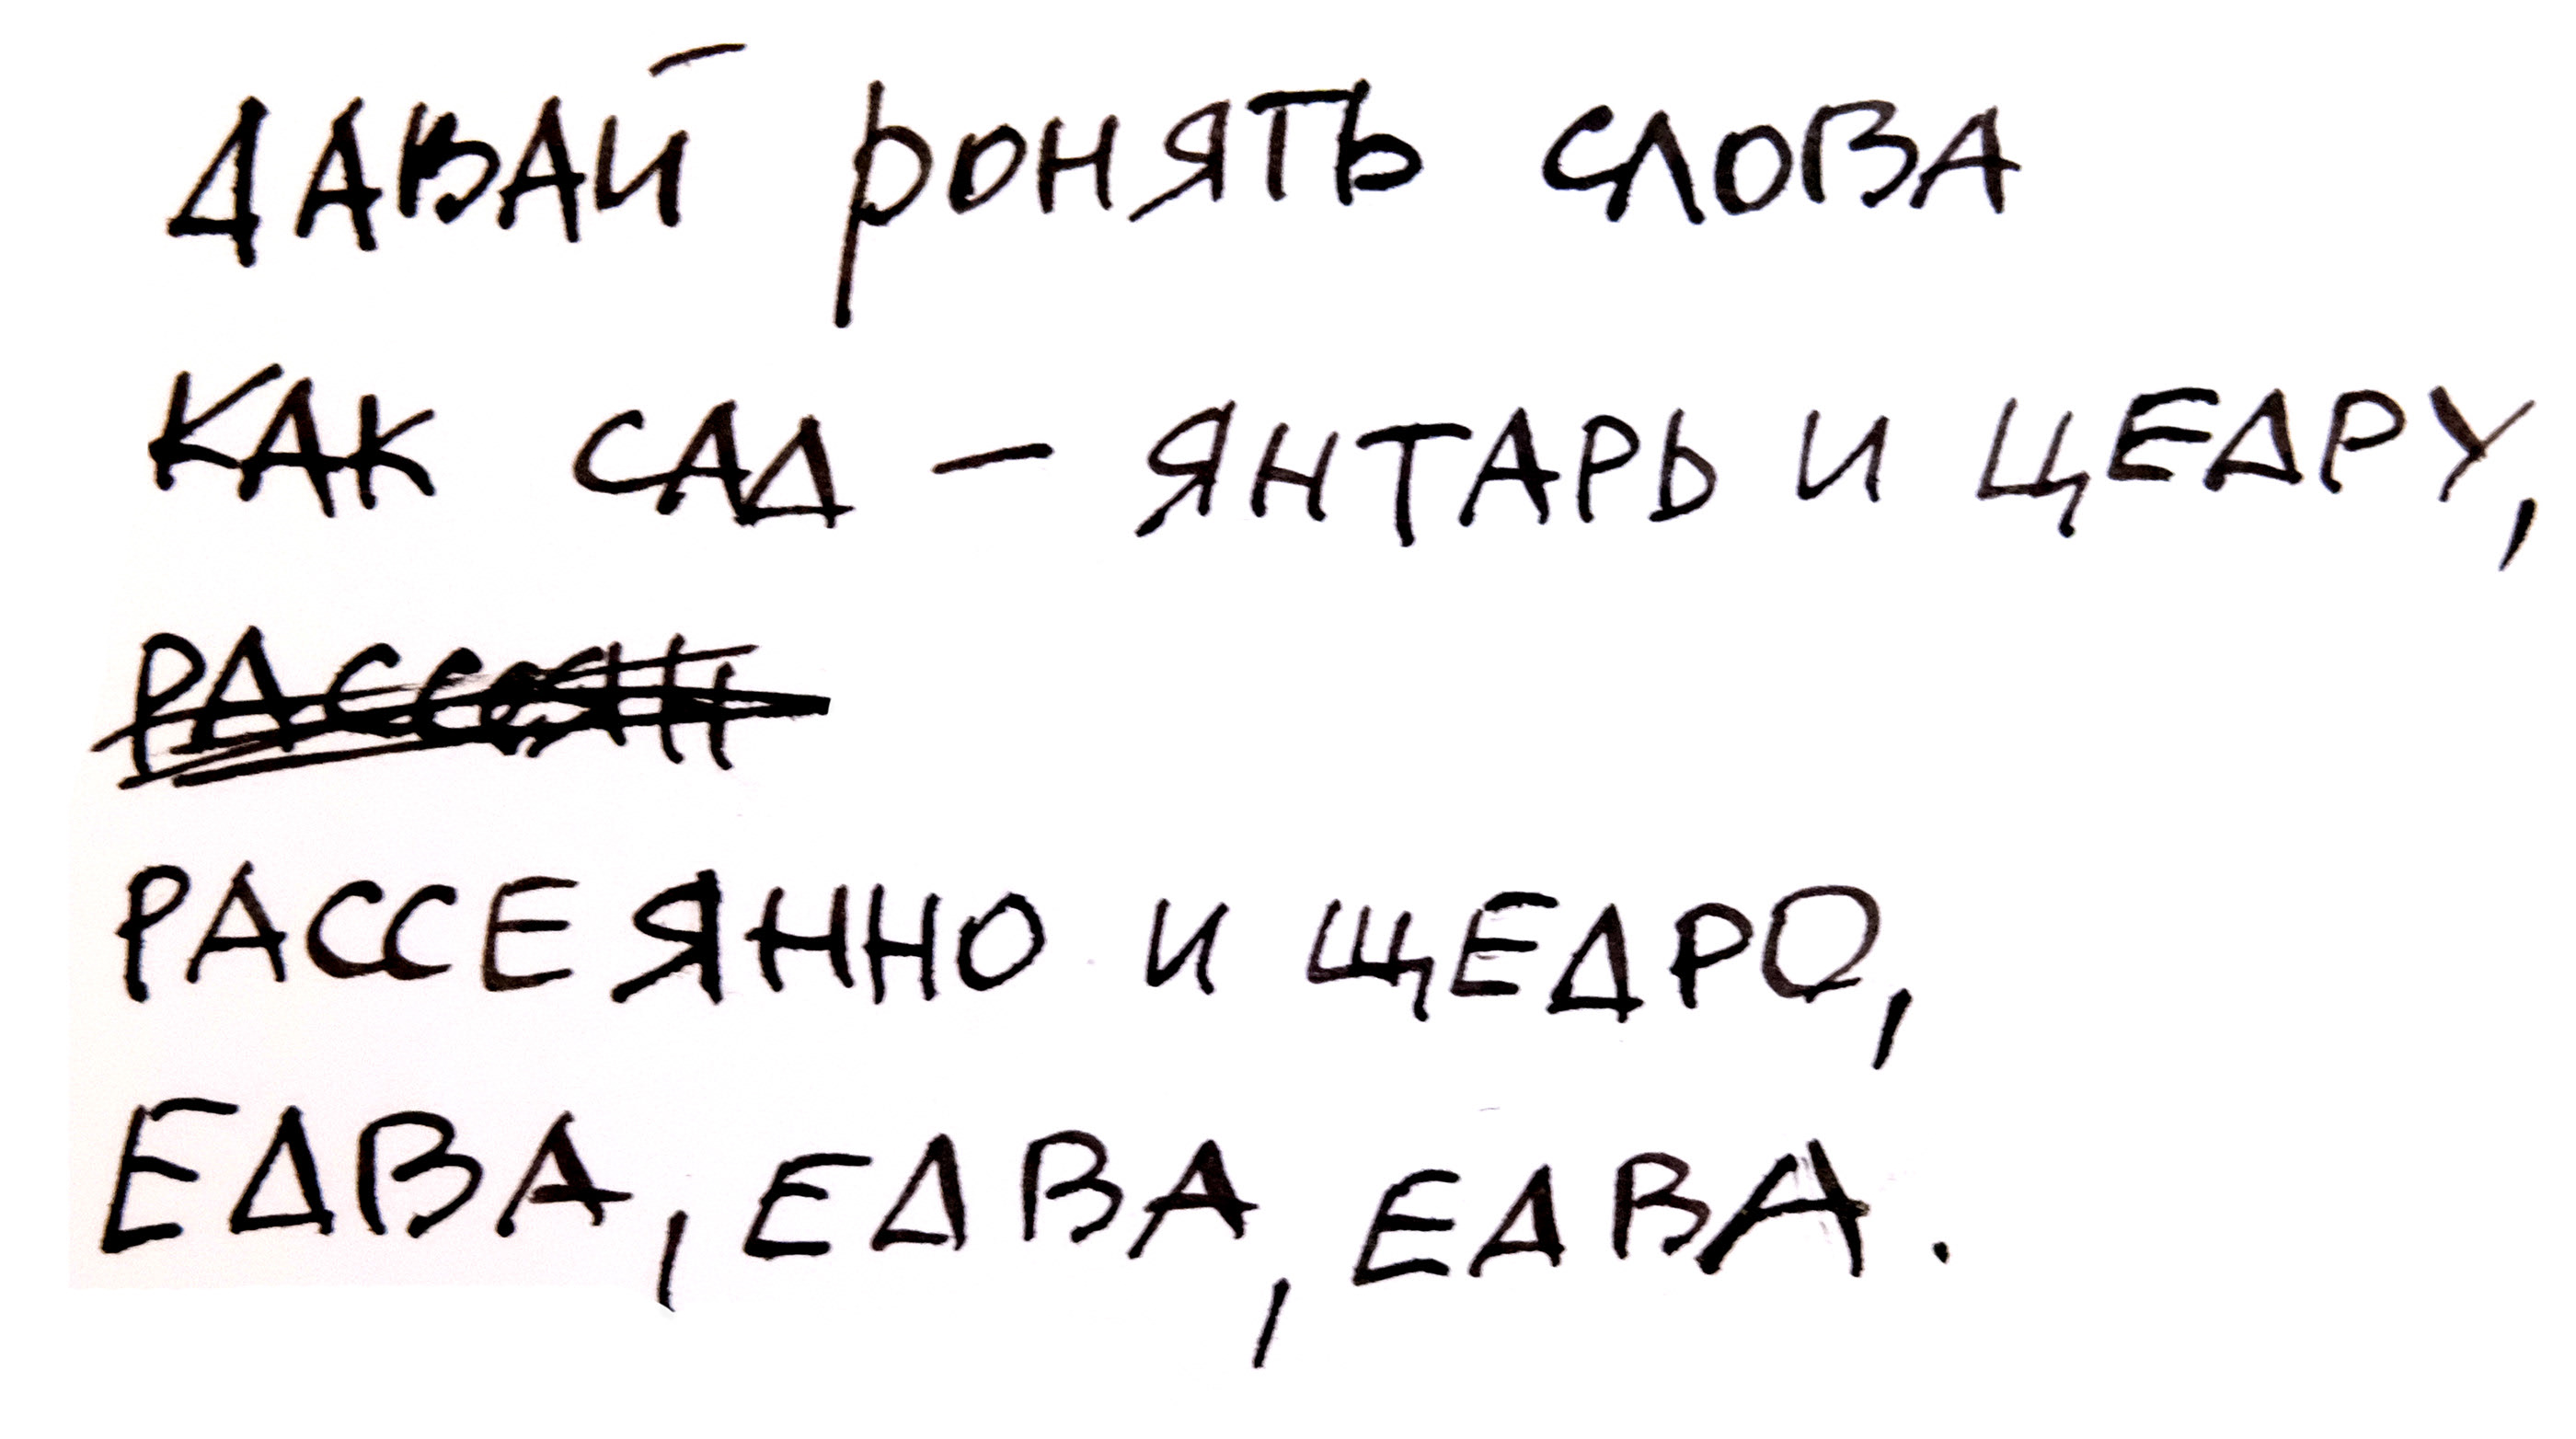 ДАВАЙ РОНЯТЬ СЛОВА
КАК САД — ЯНТАРЬ И ЦЕДРУ,
РАССЕЯННО И ЩЕДРО,
ЕДВА, ЕДВА, ЕДВА.